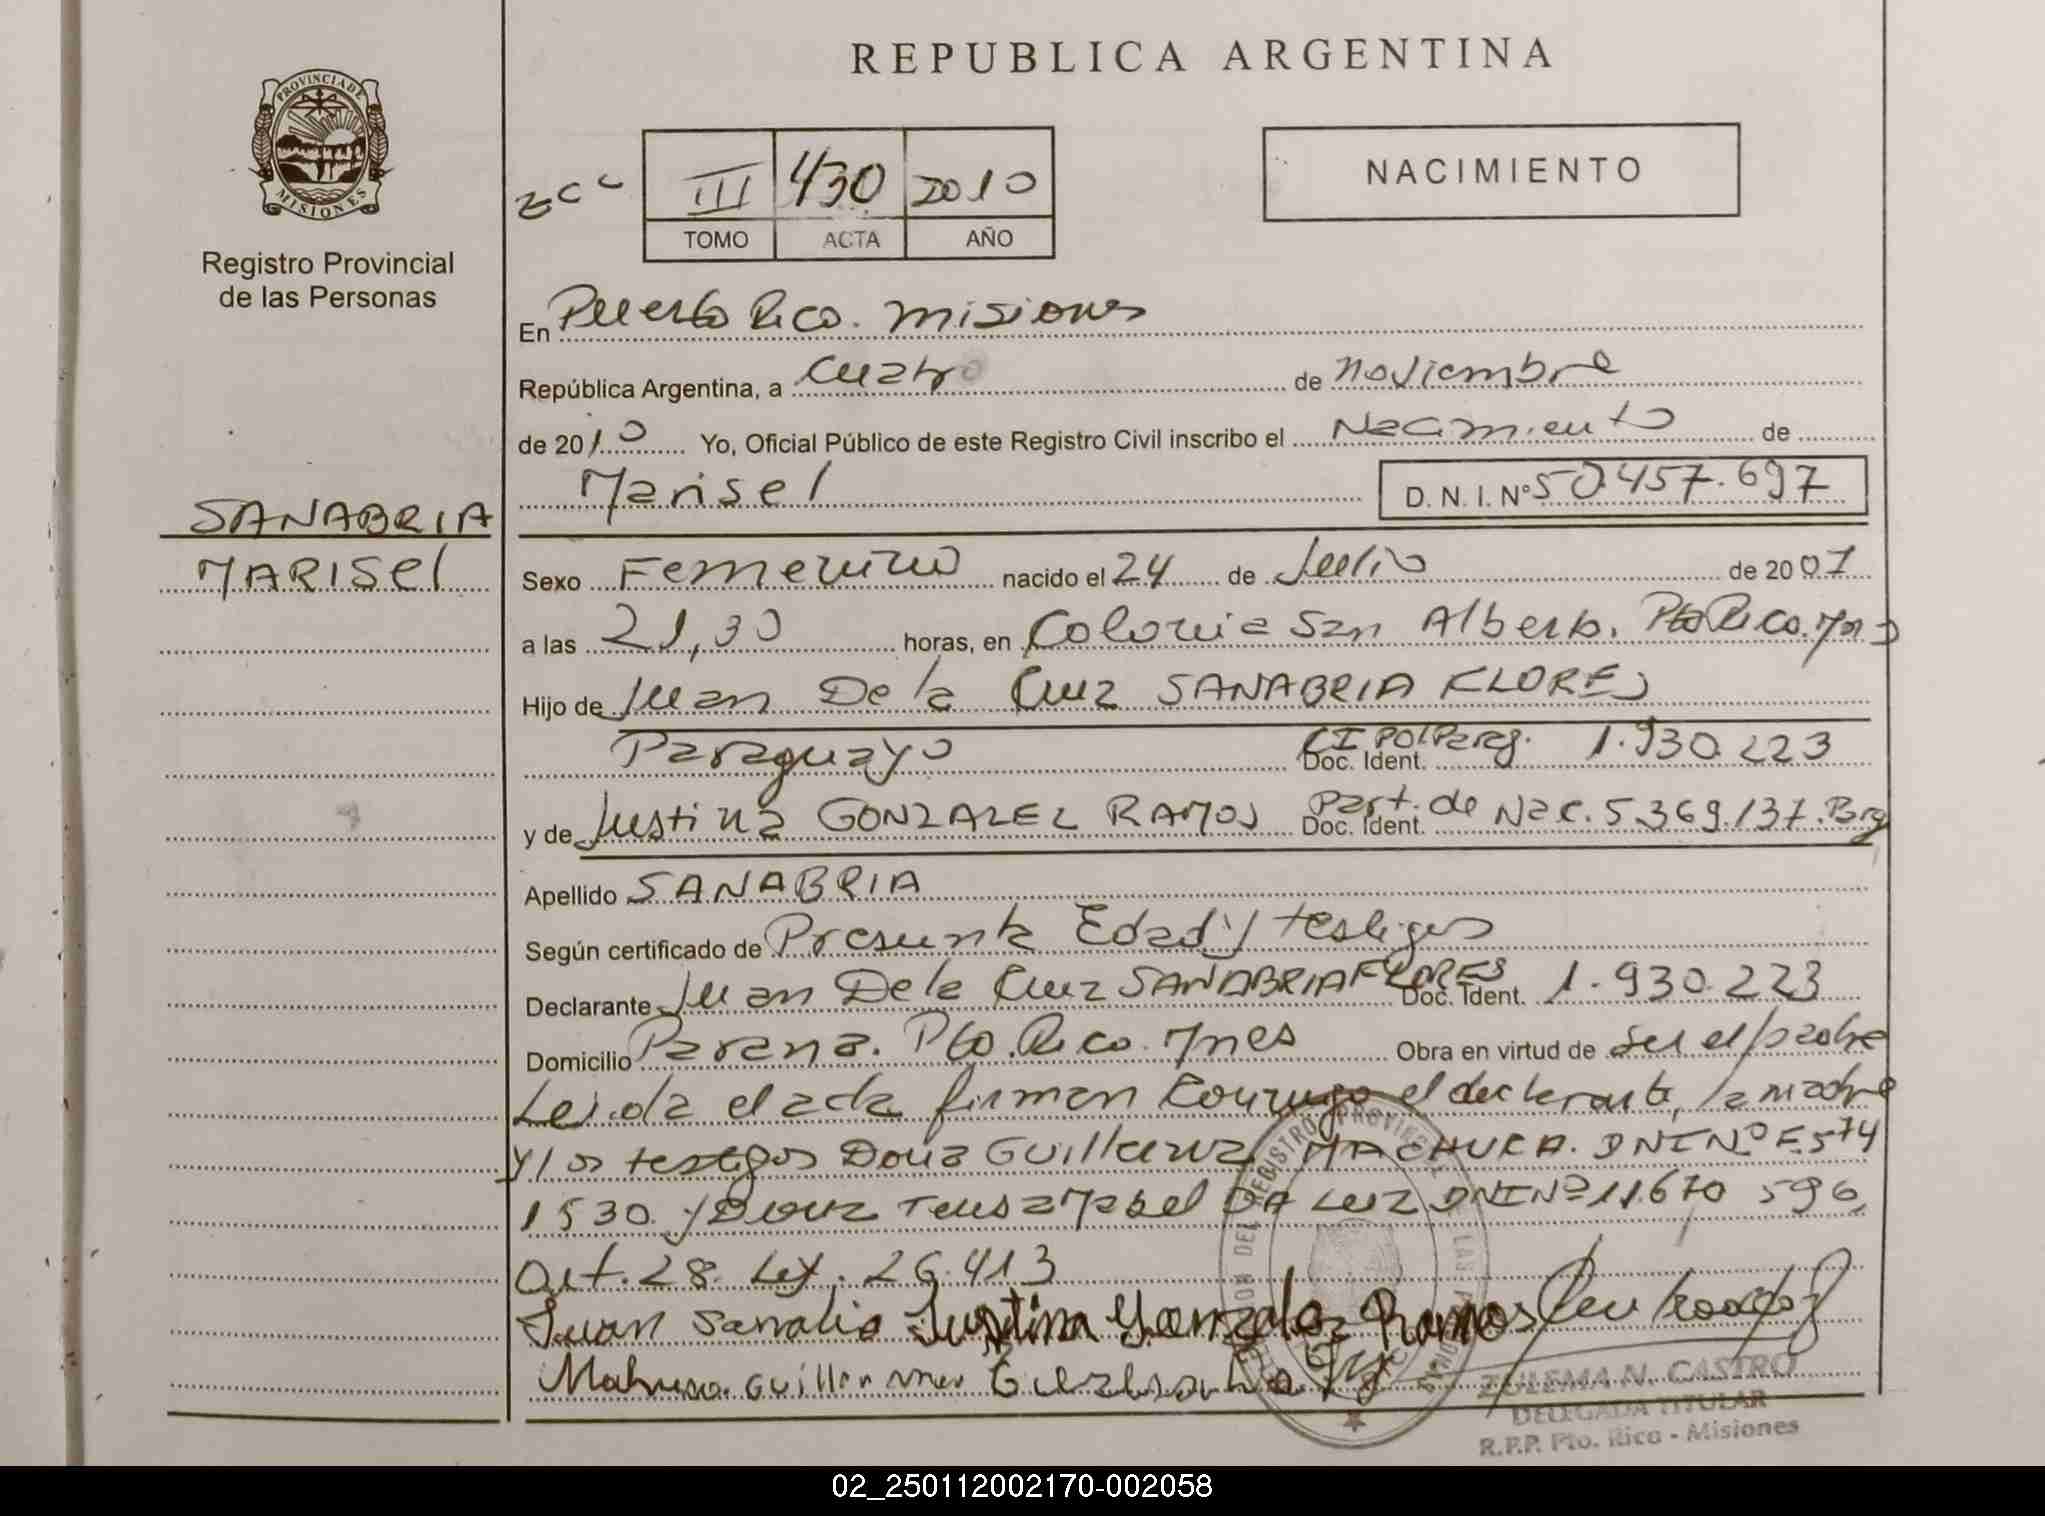 REPUBLICA ARGENTINA
PROVINCIA DE
MISIONES
Registro Provincial
de las Personas
NACIMIENTO
III 430 2010
TOMO ACTA AÑO
En Puerto Rico. Misiones
República Argentina, a Cuatro de noviembre
de 2010 Yo, Oficial Público de este Registro Civil inscribo el Nacimiento de
Marisel D. N. I. Nº 50.457.697
SANABRIA
MARISEl
Sexo Femenino nacido el 24 de Julio de 2007
a las 21,30 horas, en Colonia San Alberto. Pto Rico. Mnes
Hijo de Juan De la Cruz SANABRIA FLORES
Paraguayo CI Pol Parag. Doc. Ident. 1.930.223
y de Justina GONZALEZ RAMOS Part. de Nac. Doc. Ident. 5.369.137. Prg
Apellido SANABRIA
Según certificado de Presunta Edad y testigos
Declarante Juan De la Cruz SANABRIA FLORES Doc. Ident. 1.930.223
Domicilio Parana. Pto. Rico. Mnes Obra en virtud de ser el padre
Leida el acta firman conmigo el declarante, la madre
y los testigos Doña Guillermina MACHUCA. DNI Nº F.574
1530. y Doña Teresa Mabel DA LUZ DNI Nº 11.670 596,
Art. 28. Ley. 26.413
Juan Sanabria Justina Gonzalez Ramos
ZULEMA N. CASTRO
DELEGADA TITULAR
R.P.P. Pto. Rico - Misiones
02_250112002170-002058